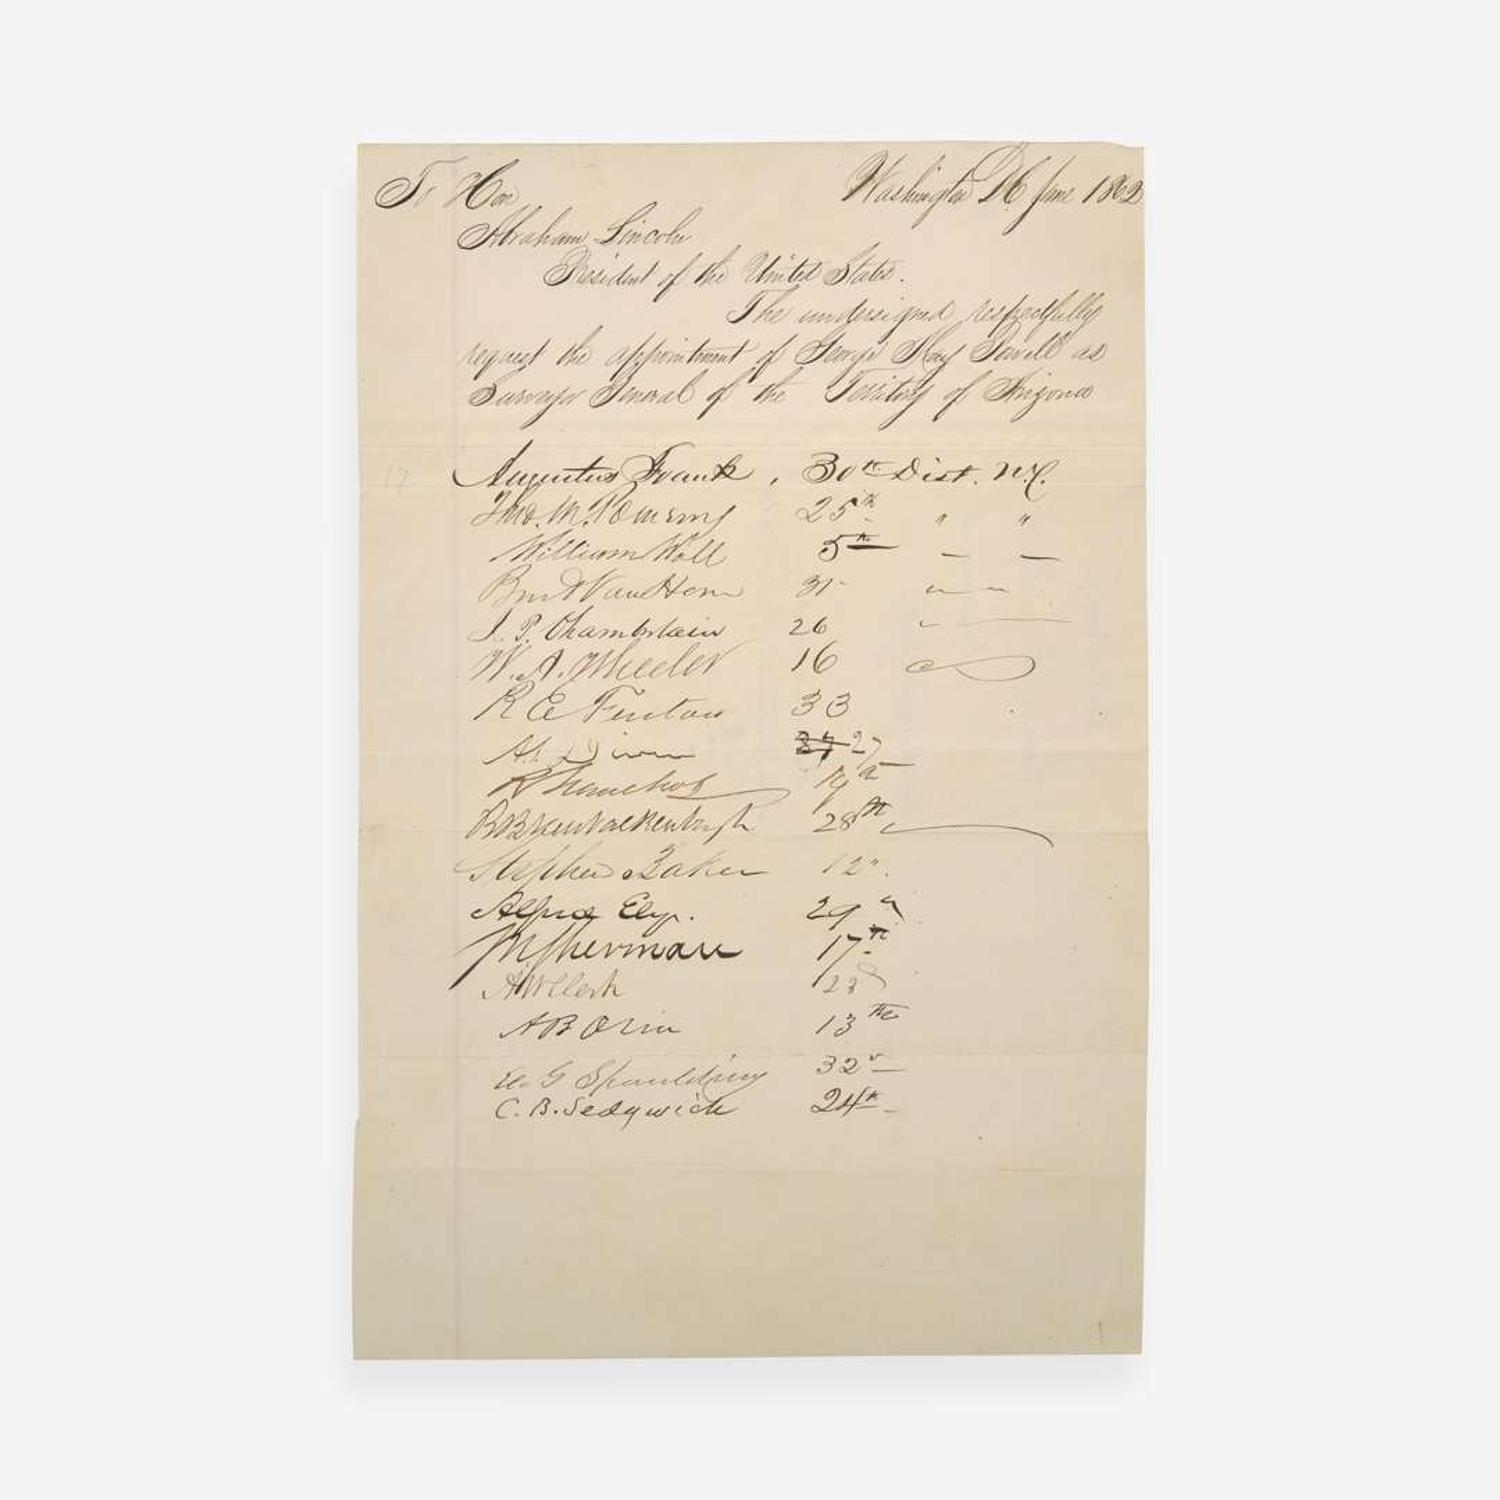 To Hon Washington DC June 1862
Abraham Lincoln
President of the United States.
The undersigned respectfully
request the appointment of George Hay Powell as
Surveyor General of the Territory of Arizona
Augustus Frank, 30th Dist. N.Y.
Theo. M. Pomeroy 25th " "
William Wall 5th — —
Burt Van Horn 31 " "
J. P. Chamberlain 26
W. A. Wheeler 16
R E Fenton 33
A. S. Diven 37 27
R Franchot 19th
R B Van Valkenburgh 28th
Stephen Baker 12".
Alfred Ely. 29 "
S N Sherman 17th
A W Clark 23
A B Olin 13th
E. G Spaulding 32d
C. B. Sedgwick 24th